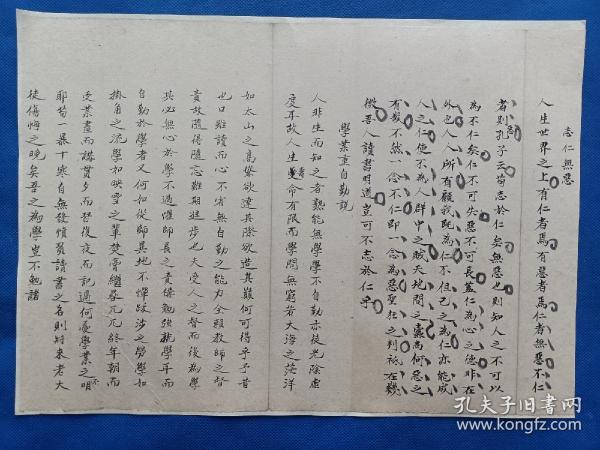 志仁無惡
人生世界之上有仁者焉有惡者焉仁者無惡不仁
者則孔子云苟志於仁矣無惡也則知人之不可以
為不仁矣仁不可失惡不可長蓋仁為心之德非在
外也人人所有顧我既為仁不但己之為仁亦能成
人之仁使不為人群中之賊天地間之蠹焉何惡之
有哉不然一念不仁即一念為惡聖狂之判祗在幾
微吾人讀書明道豈可不志於仁乎
學業重自勤說
人非生而知之者孰能無學學不自勤亦徒光陰虛
度耳故人生壽命有限而學問無窮若大海之茫洋
如太山之高聳欲達其際欲造其巔何可得乎予昔
也口雖讀而心不省無自勤之能力全賴教師之督
責故隨得隨忘難期進步也夫受人之督而後為學
其必無心於學不過懼師長之責備勉強就學耳而
自勤於學者又何如從師異地不憚跋涉之勞學如
掛角之流學如映雪之輩焚膏繼晷兀兀終年朝而
受業晝而講貫夕而習復夜而記過何憂學業之不明
耶苟一暴十寒自無發憤質讀書之名則將來老大
徒傷悔之晚矣吾之為學豈不勉諸
孔夫子旧书网
www.kongfz.com